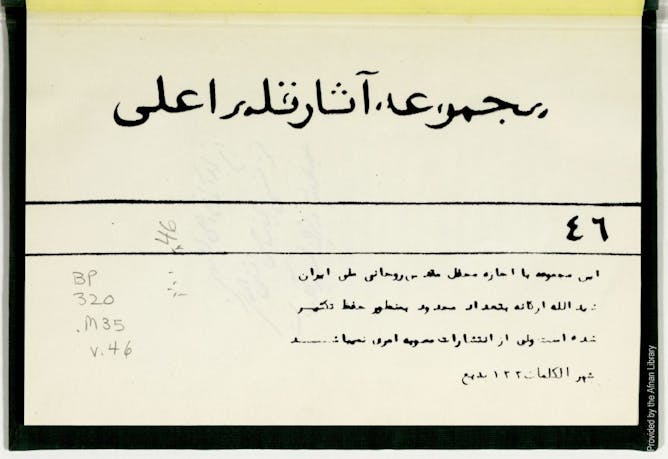 مجموعه آثار قلم اعلی
٤٦
46
BP
320
.M35
v.46
این مجموعه با اجازه محفل مقدس روحانی ملی ایران
شید الله ارکانه بتعداد محدود بمنظور حفظ تکثیر
شده است ولی از انتشارات مصوبه امری نمیباشد
شهر الکلمات ١٢٢ بدیع
Provided by the Afnan Library